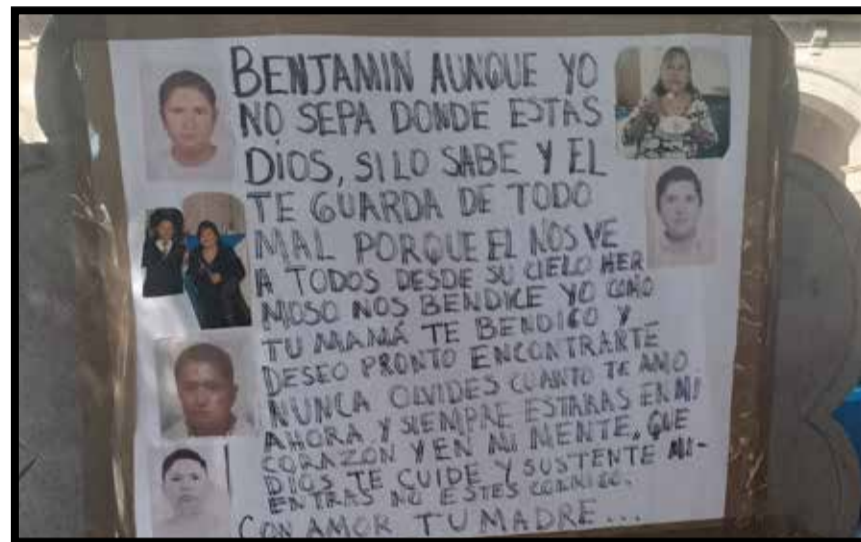 BENJAMIN AUNQUE YO
NO SEPA DONDE ESTAS
DIOS, SI LO SABE Y EL
TE GUARDA DE TODO
MAL PORQUE EL NOS VE
A TODOS DESDE SU CIELO HER
MOSO NOS BENDICE YO COMO
TU MAMÁ TE BENDIGO Y
DESEO PRONTO ENCONTRARTE
NUNCA OLVIDES CUANTO TE AMO
AHORA Y SIEMPRE ESTARAS EN MI
CORAZON Y EN MI MENTE, QUE
DIOS TE CUIDE Y SUSTENTE MI-
ENTRAS NO ESTES CONMIGO.
CON AMOR TU MADRE...